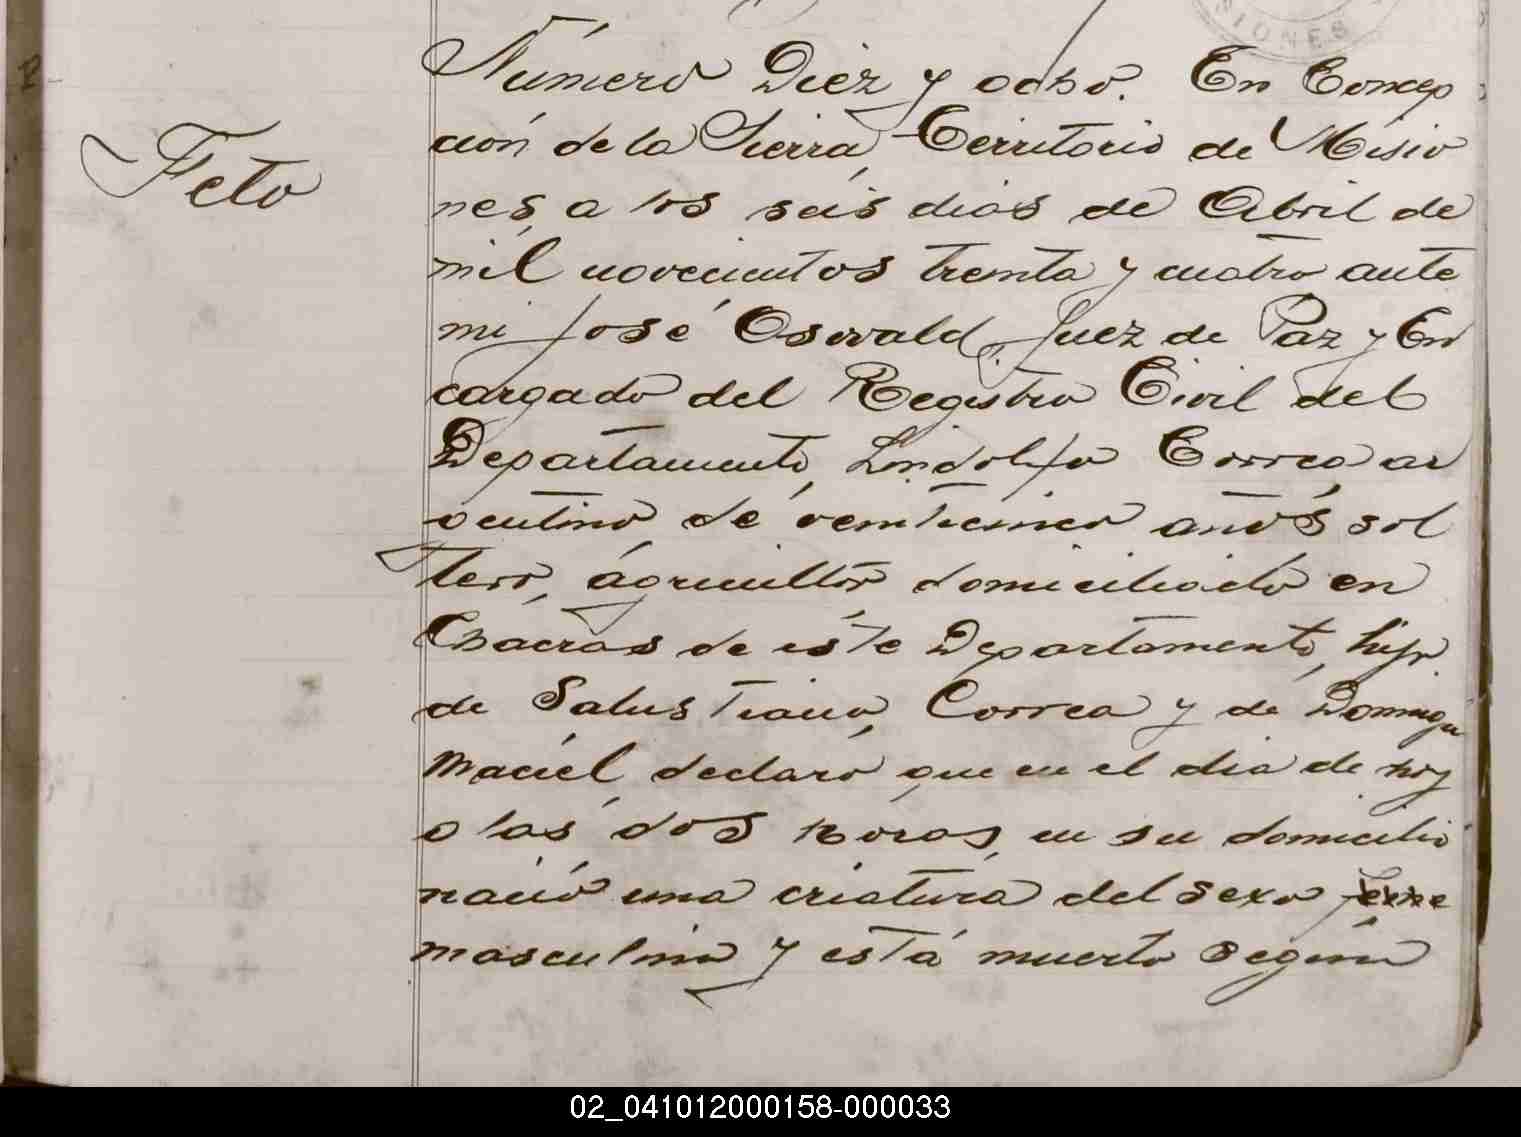 IONES
Número Diez y ocho. En Concep
ción de la Sierra, Territorio de Misio
nes, a los seis dias de Abril de
mil novecientos treinta y cuatro ante
mi José Oswald, Juez de Paz y En
cargado del Registro Civil del
Departamento, Lindolfo Correa, ar
gentino de veinticinco años sol
tero, agricultor domiciliado en
Chacras de este Departamento, hijo
de Salustiano Correa y de Dominga
Maciel, declaró que en el dia de hoy
a las dos horas, en su domicilio
nació una criatura del sexo feme
masculino y está muerto según
Feto
02_041012000158-000033